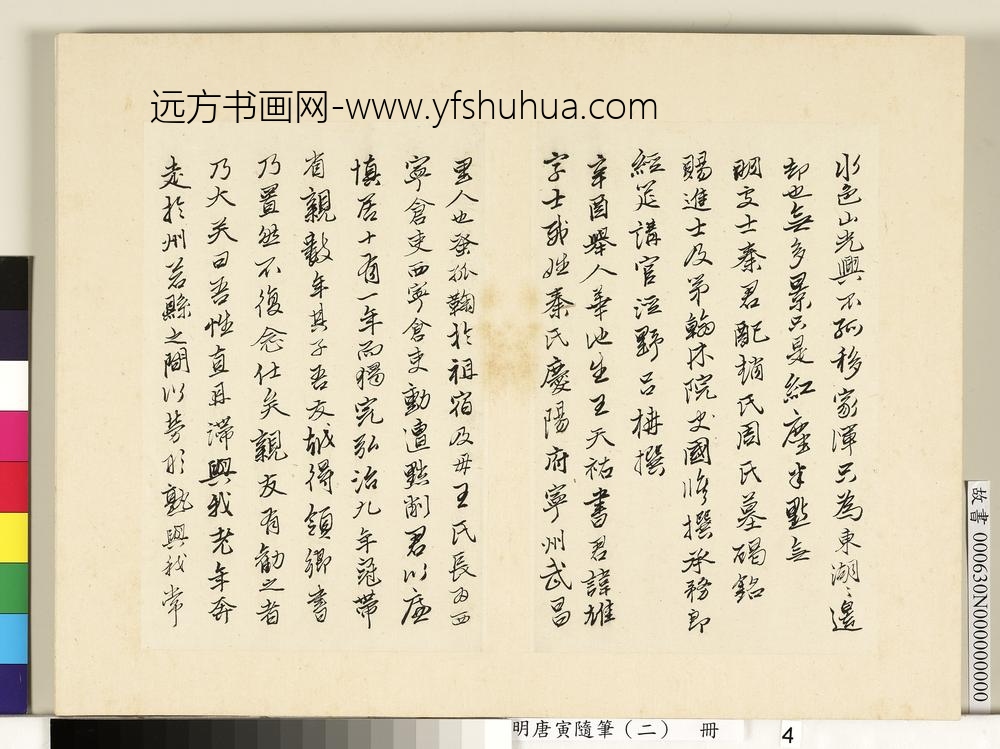 远方书画网-www.yfshuhua.com
水色山光興不孤移家渾只為東湖湖邊
却也無多景只是紅塵半點無
明處士秦君配趙氏周氏墓碣銘
賜進士及第翰林院史國修撰承務郎
經筵講官涇野呂柟撰
辛酉舉人華池生王天祐書君諱雄
字士 姓秦氏慶陽府寧州武昌
里人也蚤孤鞠於祖宿及毋王氏長為西
寧倉吏西寧倉吏動遭黜削君以廉
慎居十有一年而獨完弘治九年冠帶
省親數年其子吾友 得領鄉書
乃置然不復念仕矣親友有勸之者
乃大笑曰吾性直且滯與我老年奔
走於州若縣之間以勞形孰與我常
故書 000630N000000000
明唐寅隨筆(二) 冊
4